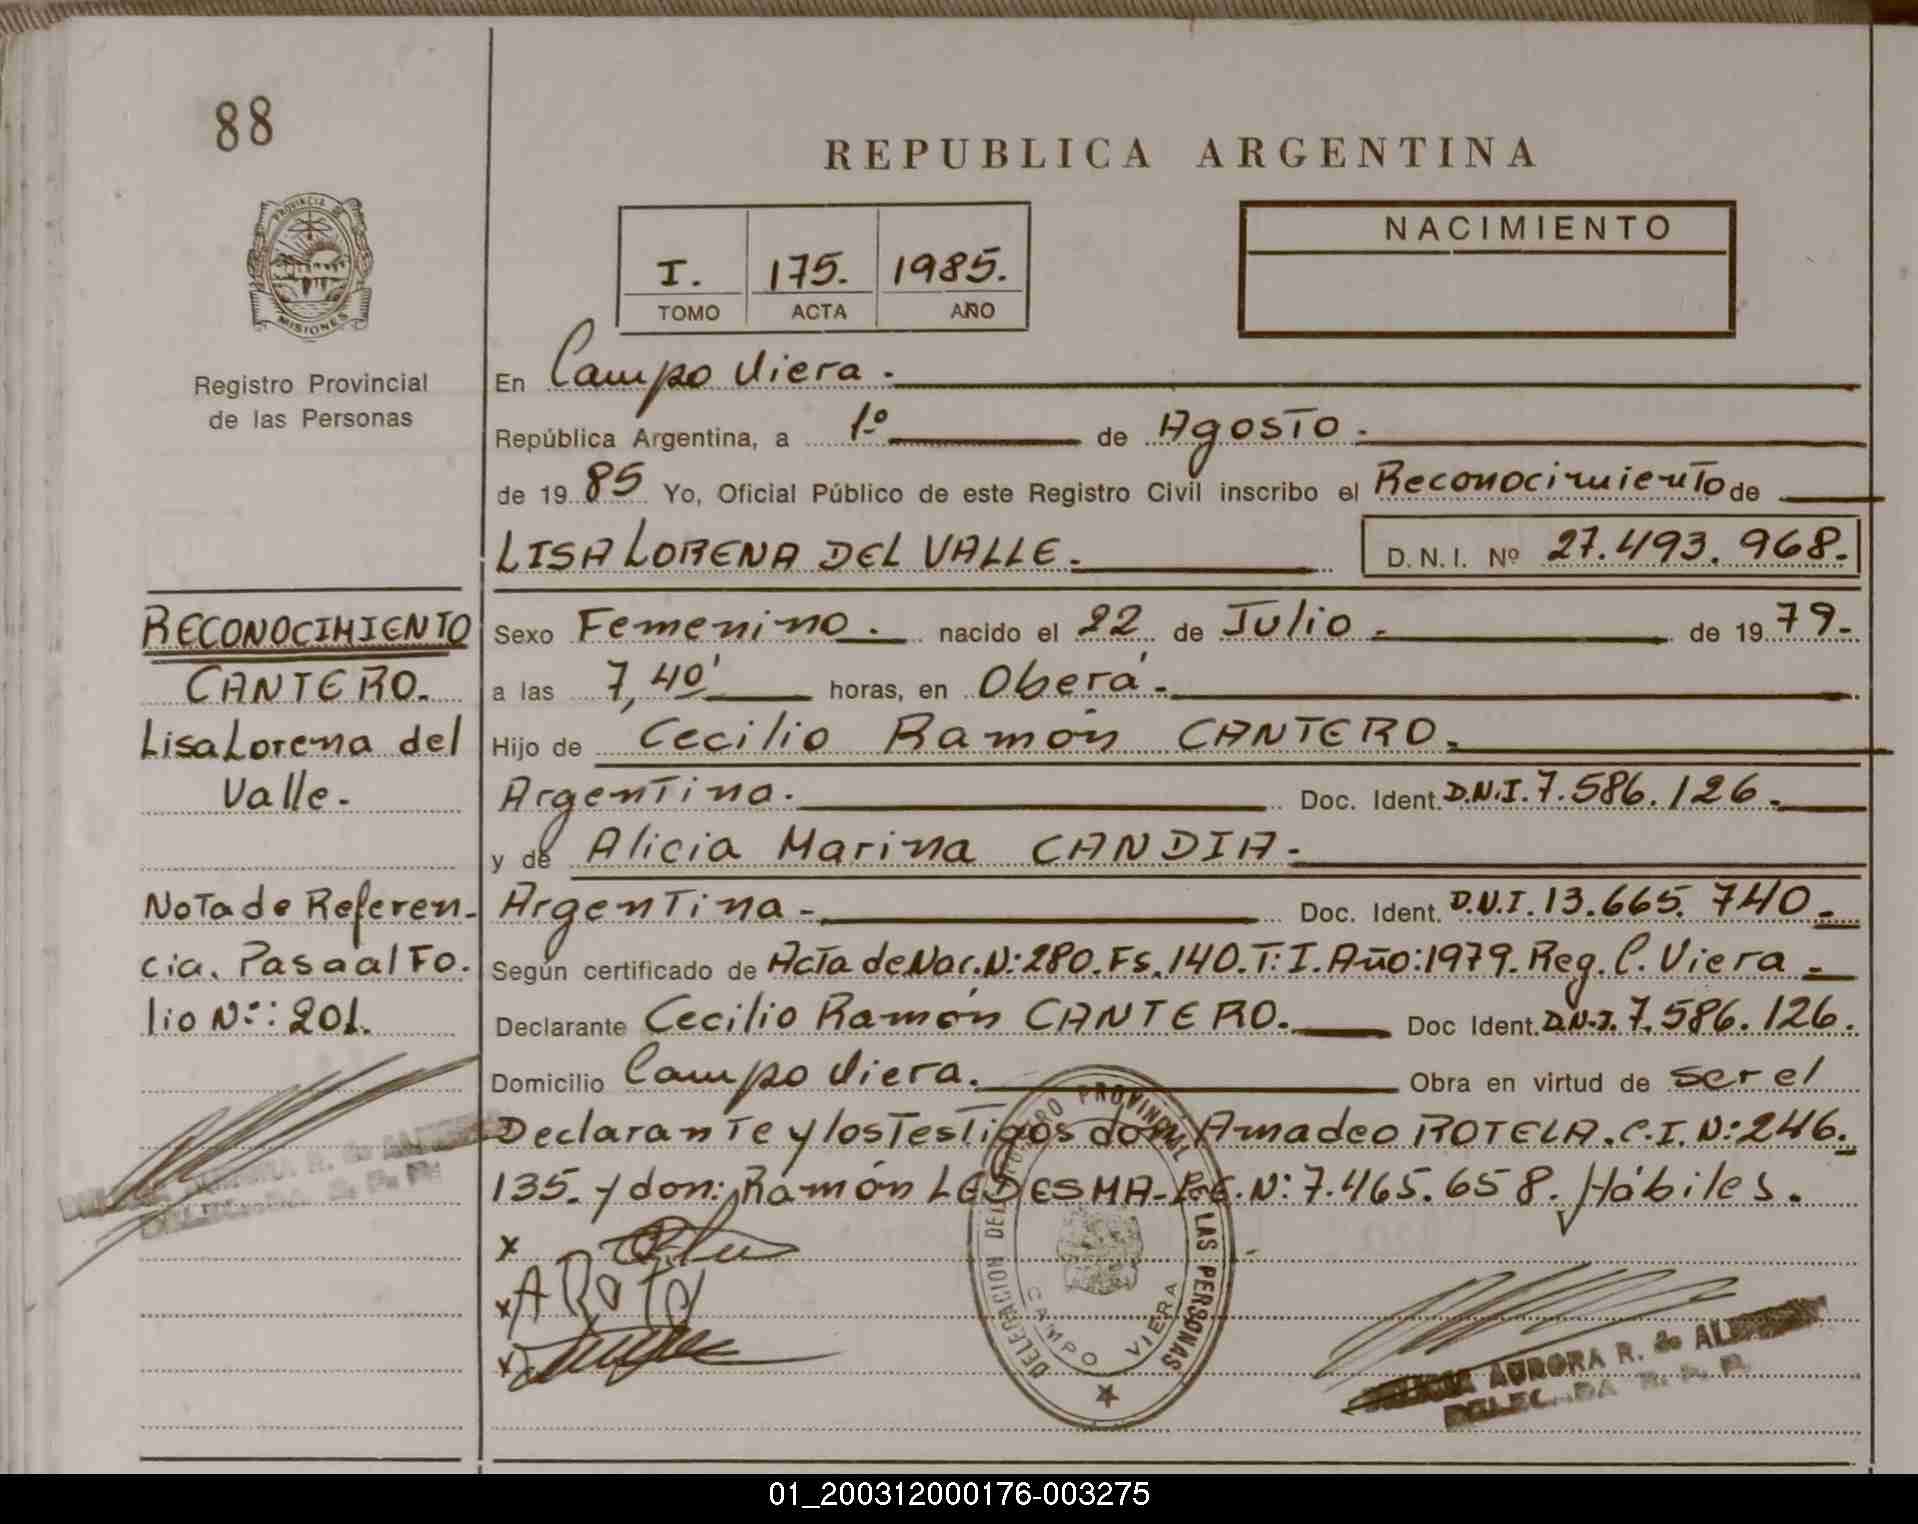 88
REPUBLICA ARGENTINA
PROVINCIA DE
MISIONES
Registro Provincial
de las Personas
I. 175. 1985.
TOMO ACTA AÑO
NACIMIENTO
En Campo Viera.
República Argentina, a 1º de Agosto.
de 19 85 Yo, Oficial Público de este Registro Civil inscribo el Reconocimiento de
LISA LORENA DEL VALLE. D. N. I. Nº 27.493.968.-
Sexo Femenino. nacido el 22 de Julio.- de 19 79.-
a las 7,40' horas, en Oberá.-
Hijo de Cecilio Ramón CANTERO.
Argentina. Doc. Ident. D.N.I. 7.586.126.-
y de Alicia Marina CANDIA.-
Argentina.- Doc. Ident. D.N.I. 13.665.740.-
Según certificado de Acta de Nac. N: 280. Fs. 140. T: I. Año: 1979. Reg. C. Viera.-
Declarante Cecilio Ramón CANTERO. Doc Ident. D.N.I. 7.586.126.
Domicilio Campo Viera. Obra en virtud de ser el
Declarante y los Testigos don Amadeo ROTELA. C.I. N: 246.
135. y don: Ramón LEDESMA- L.E. N: 7.465.658. Hábiles.
x
x A Rota
x
RECONOCIMIENTO
CANTERO.
Lisa Lorena del
Valle.-
Nota de Referen-
cia. Pasa al Fo-
lio N:: 201.
DELEGACION DEL REGISTRO PROVINCIAL DE LAS PERSONAS
CAMPO VIERA
AURORA R. de
DELEGADA R. P. P.
01_200312000176-003275